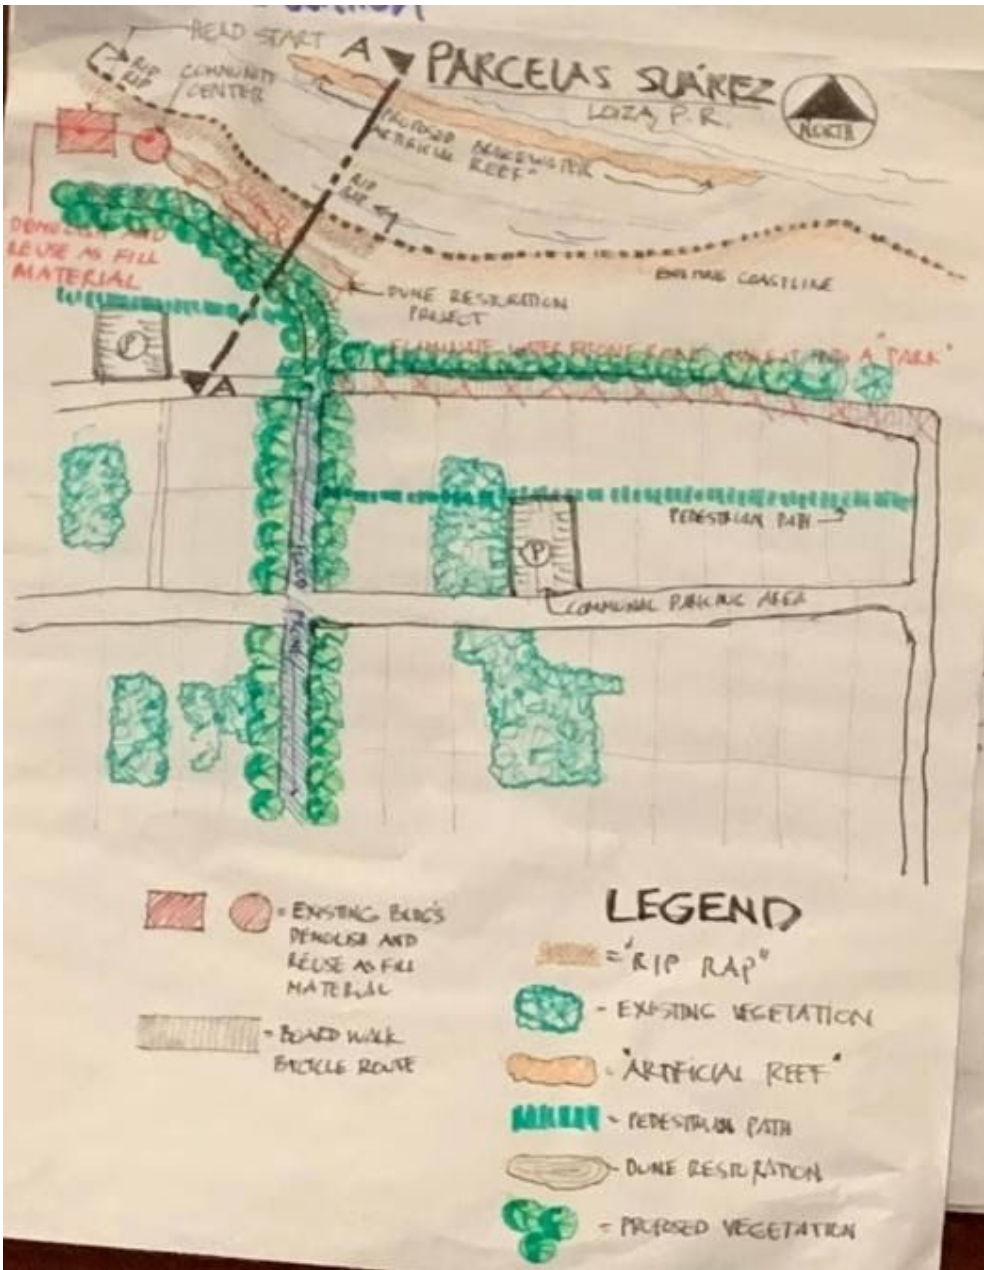 HEAD START
A
PARCELAS SUÁREZ
LOIZA, P.R.
NORTH
RIP
RAP
COMMUNITY
CENTER
PROPOSED BREKEWATER
"ARTIFICIAL REEF"
RIP
RAP
DEMOLISH AND
REUSE AS FILL
MATERIAL
EXISTING COASTLINE
DUNE RESTORATION
PROJECT
ELIMINATE WATER FRONT ROAD, INTO A "PARK"
P
A
PEDESTRIAN PATH
P
COMMUNAL PARKING AREA
= EXISTING BLDG'S
DEMOLISH AND
REUSE AS FILL
MATERIAL
= BOARD WALK
BICYCLE ROUTE
LEGEND
= "RIP RAP"
- EXISTING VEGETATION
- "ARTIFICIAL REEF"
- PEDESTRIAN PATH
- DUNE RESTORATION
= PROPOSED VEGETATION